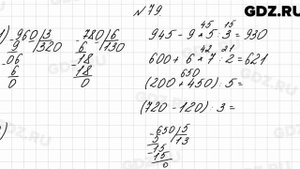 GDZ.RU
№ 79.
1) 960 | 3    780 | 6
9    320    6    130
06    18
6    18
0    0
45 15
945 - 9 · 5 : 3 = 930
42 21
600 + 6 · 7 : 2 = 621
650
(200 + 450) : 5 =
(720 - 120) : 3 =
650 | 5
5    13
15
15
0